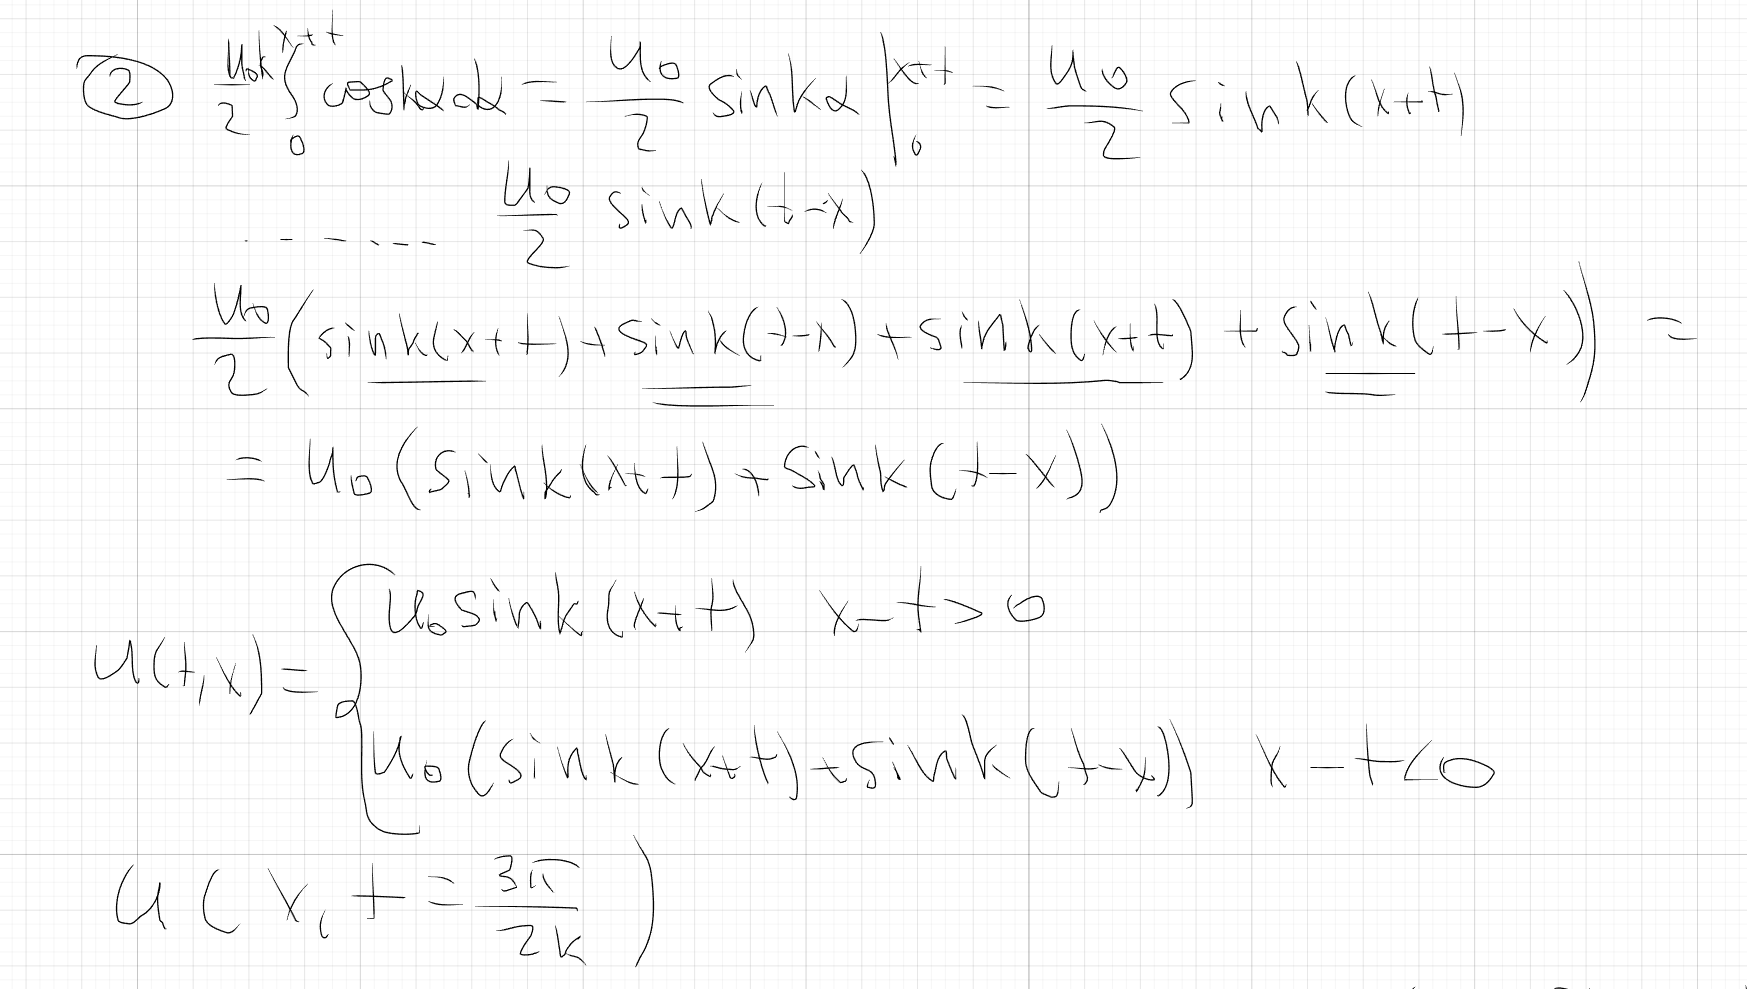 ② u₀k/2 ∫₀^{x+t} cos kα dα = u₀/2 sin kα |₀^{x+t} = u₀/2 sin k(x+t)
....... u₀/2 sin k(t-x)
u₀/2 (sin k(x+t) + sin k(t-x) + sin k(x+t) + sin k(t-x)) =
= u₀ (sin k(x+t) + sin k(t-x))
u(t,x) = { u₀ sin k(x+t) x-t>0
u₀ (sin k(x+t) + sin k(t-x)) x-t<0
u(x, t = 3π/2k)